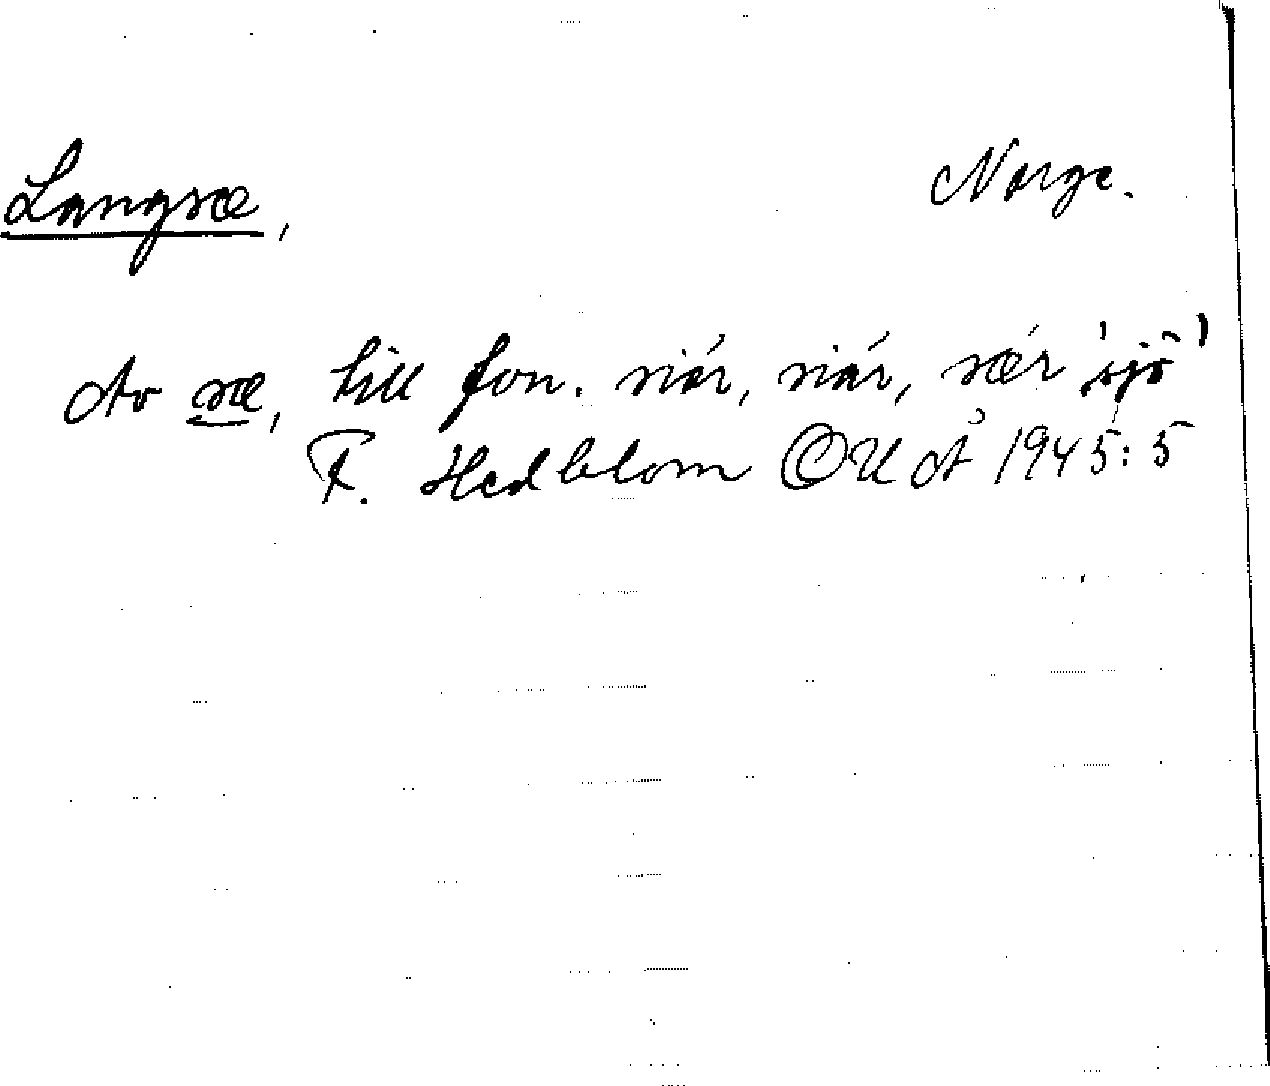 Langsæ, Norge.
Av sæ, till fon. siór, siár, sær 'sjö'
F. Hedblom OUÅ 1945:5